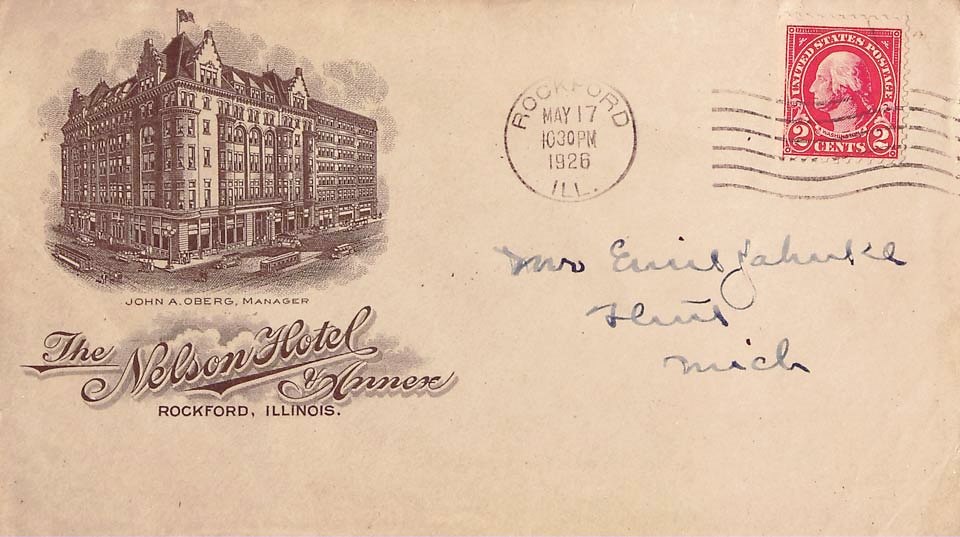 JOHN A. OBERG, MANAGER
The Nelson Hotel
& Annex
ROCKFORD, ILLINOIS.
ROCKFORD
MAY 17
1030PM
1926
ILL.
UNITED STATES POSTAGE
WASHINGTON
2 CENTS 2
Mrs Emil Jahnke
Flint
Mich